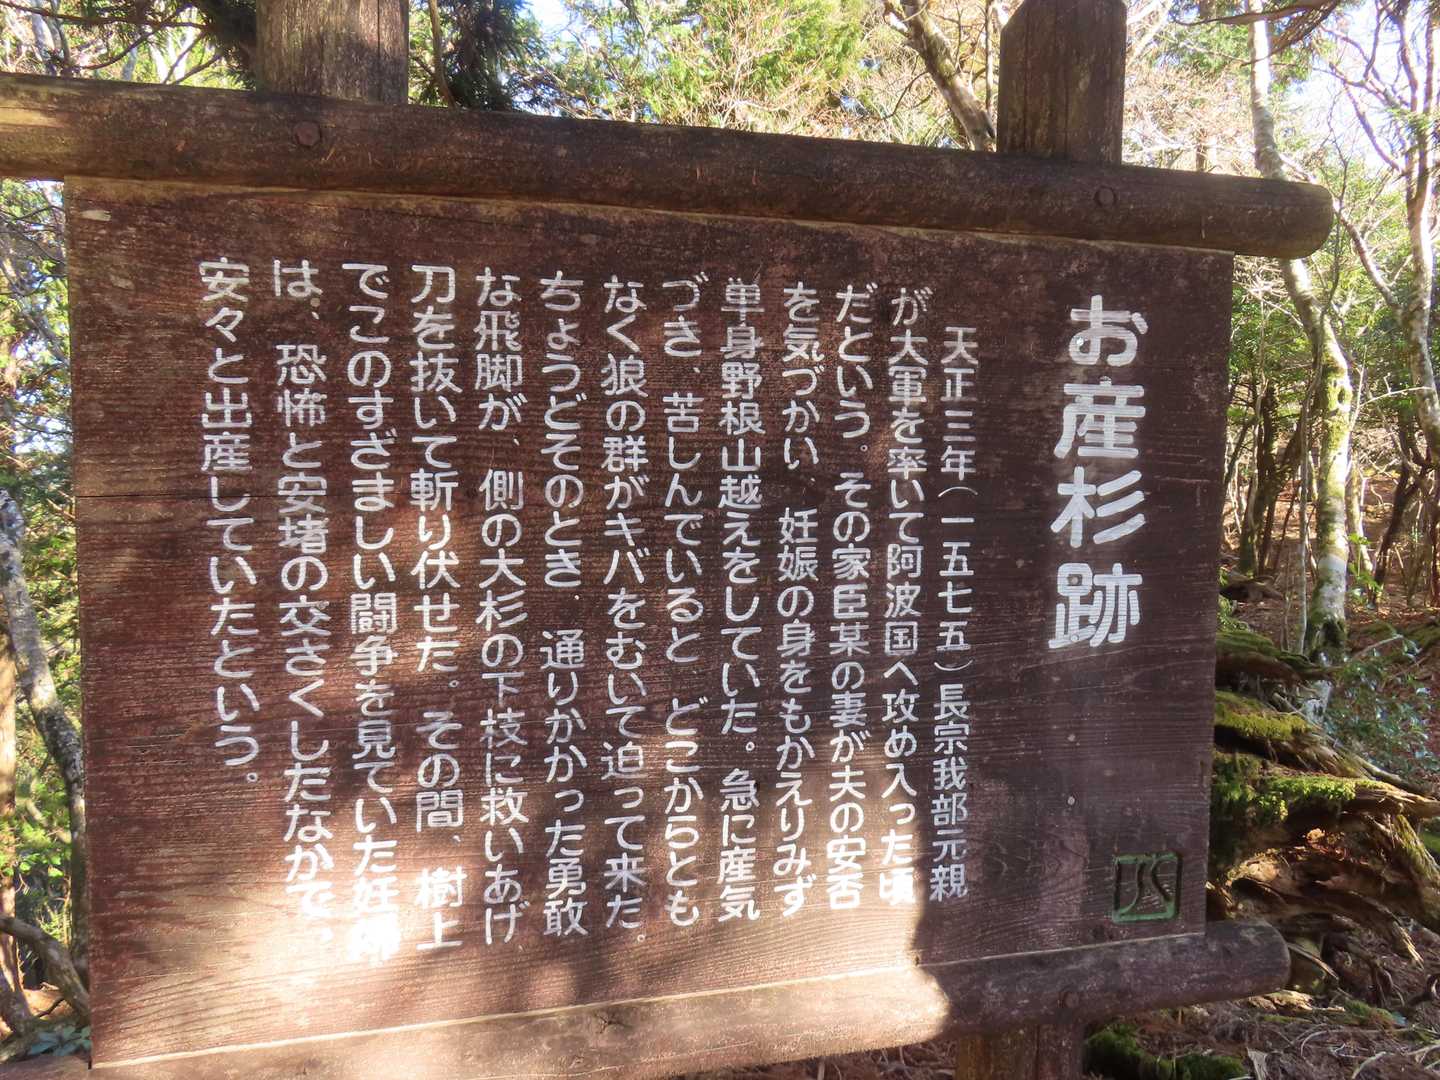 お産杉跡
天正三年(一五七五)長宗我部元親
が大軍を率いて阿波国へ攻め入った頃
だという。その家臣某の妻が夫の安否
を気づかい、妊娠の身をもかえりみず
単身野根山越えをしていた。急に産気
づき、苦しんでいると、どこからとも
なく狼の群がキバをむいて迫って来た。
ちょうどそのとき、通りかかった勇敢
な飛脚が、側の大杉の下枝に救いあげ
刀を抜いて斬り伏せた。その間、樹上
でこのすざましい闘争を見ていた妊婦
は、恐怖と安堵の交さくしたなかで、
安々と出産していたという。